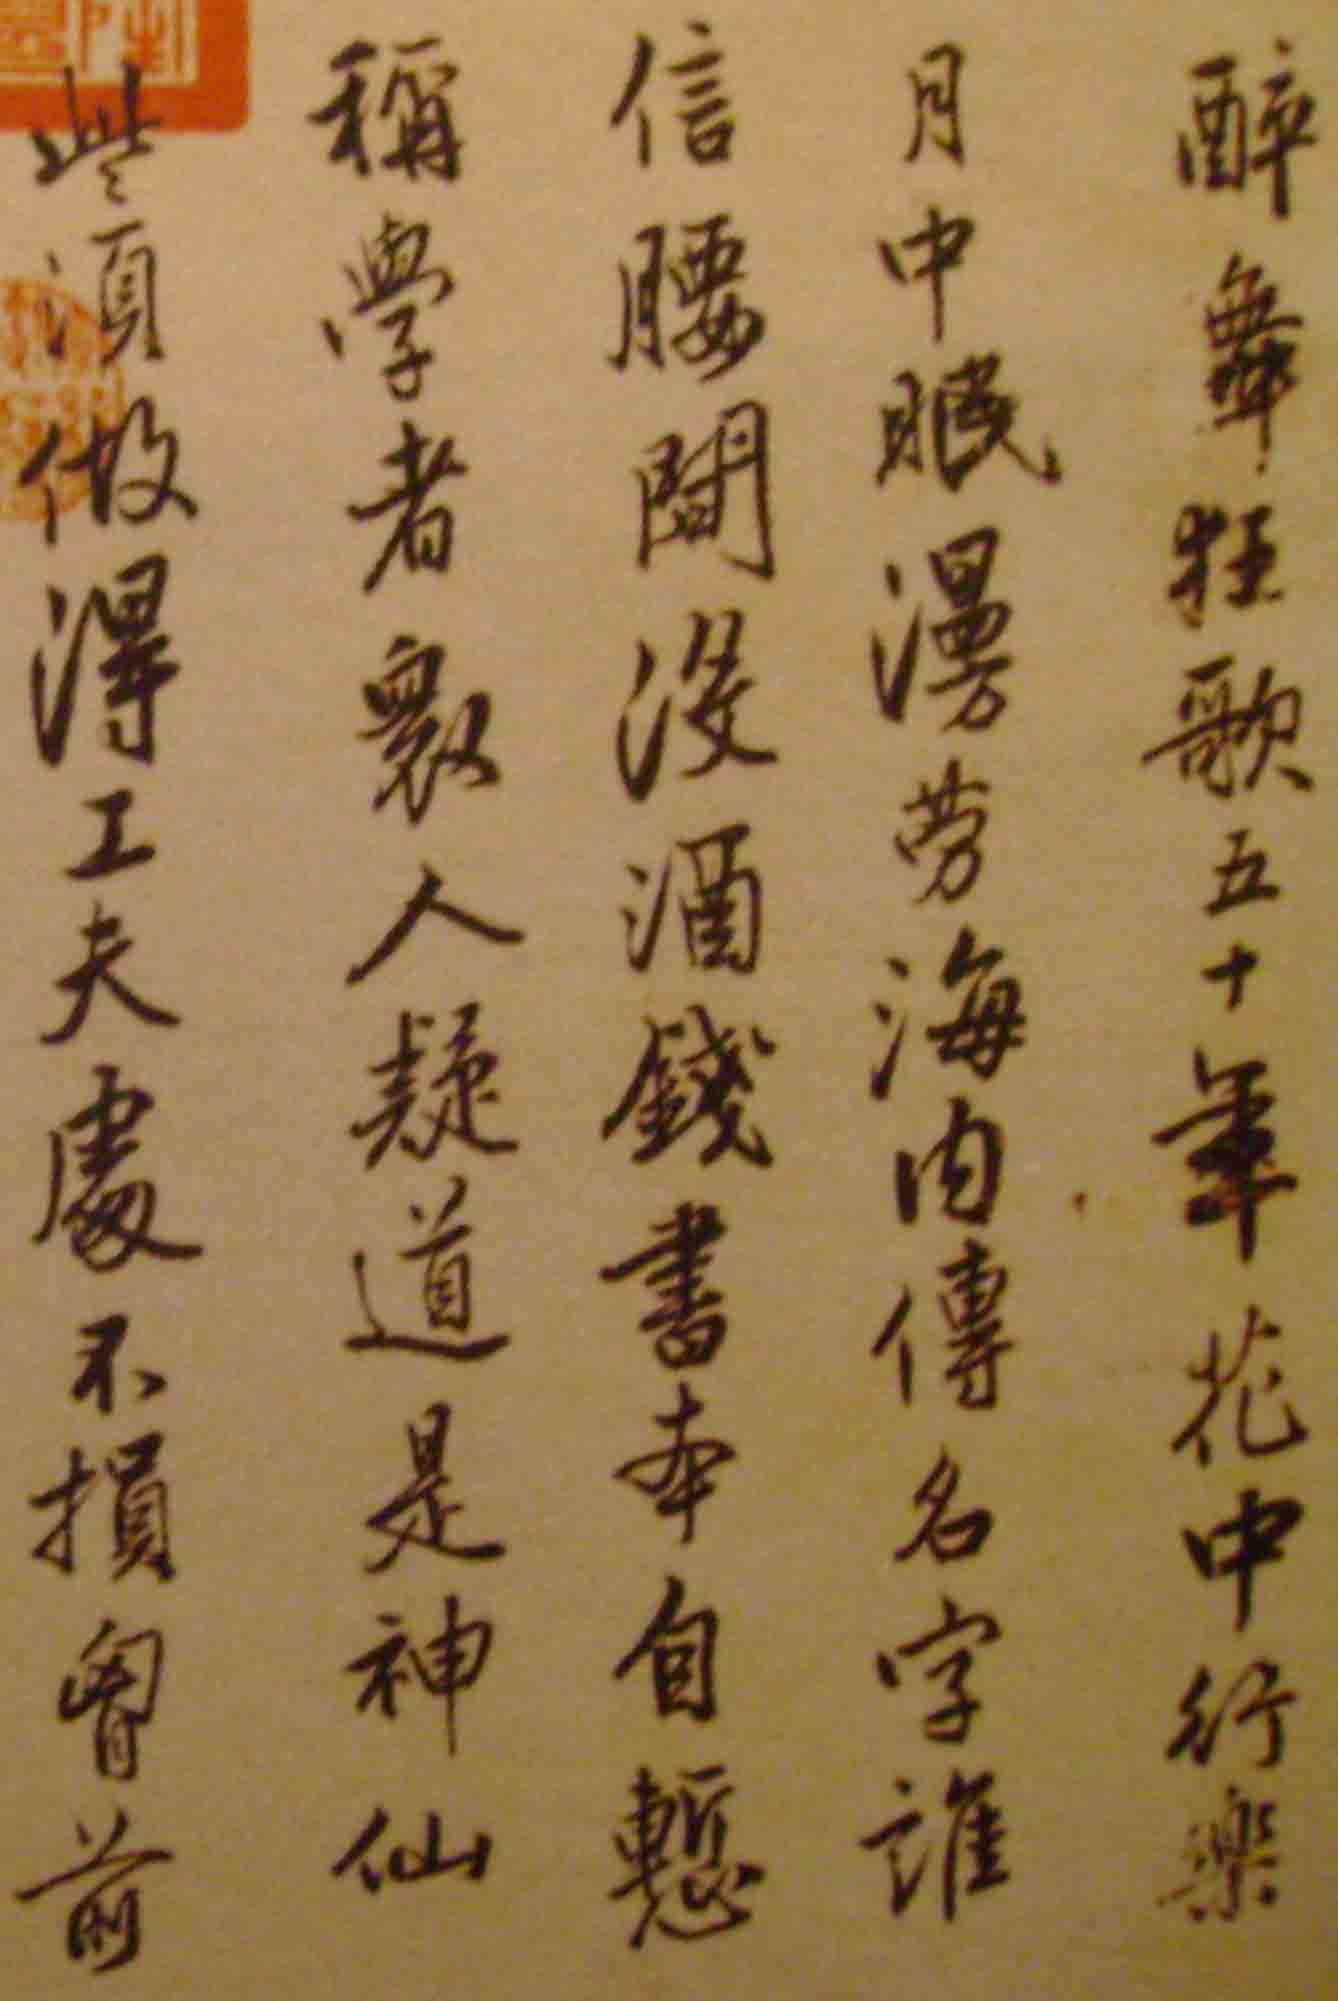 醉舞狂歌五十年花中行樂
月中眠漫勞海内傳名字誰
信腰間沒酒錢書本自慙
稱學者眾人疑道是神仙
些須做得工夫處不損胷前